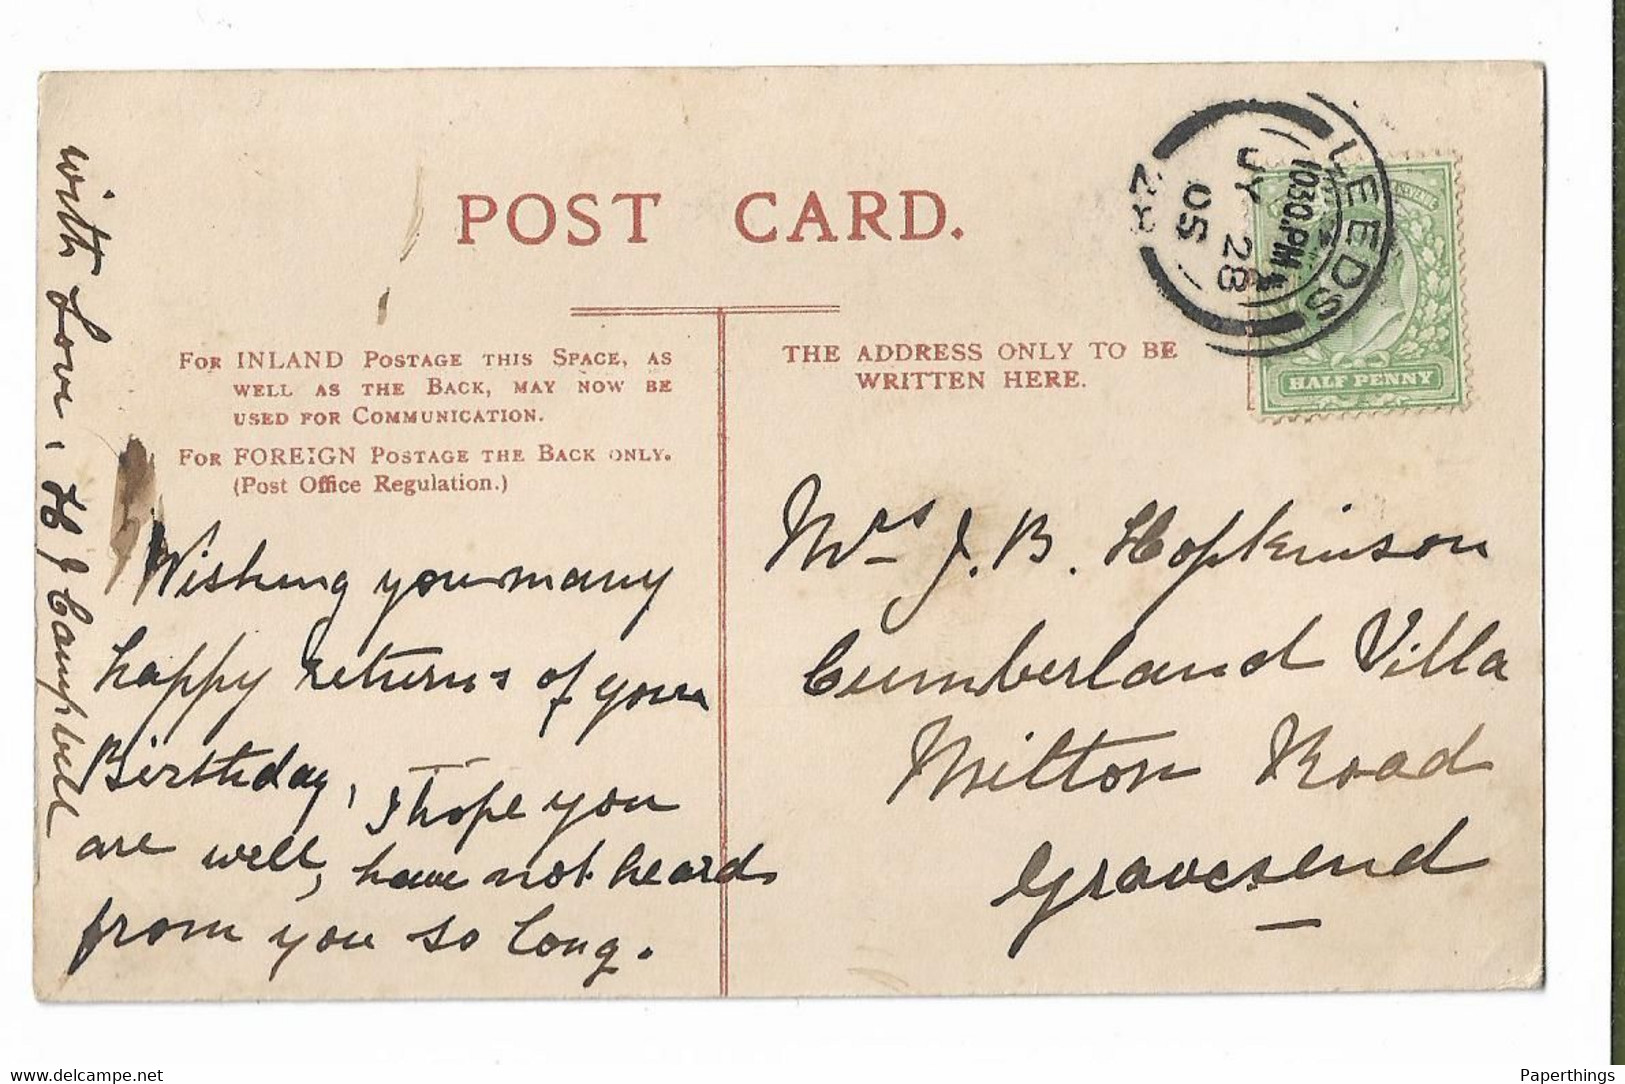 POST CARD.
LEEDS
10.30.PM
JY 28
05
HALF PENNY
FOR INLAND POSTAGE THIS SPACE, AS
WELL AS THE BACK, MAY NOW BE
USED FOR COMMUNICATION.
FOR FOREIGN POSTAGE THE BACK ONLY.
(Post Office Regulation.)
THE ADDRESS ONLY TO BE
WRITTEN HERE.
Wishing you many
happy returns of your
Birthday, I hope you
are well, have not heard
from you so long.
with Love, H J Campbell
Mrs J. B. Hopkinson
Cumberland Villa
Milton Road
Gravesend
www.delcampe.net
Paperthings